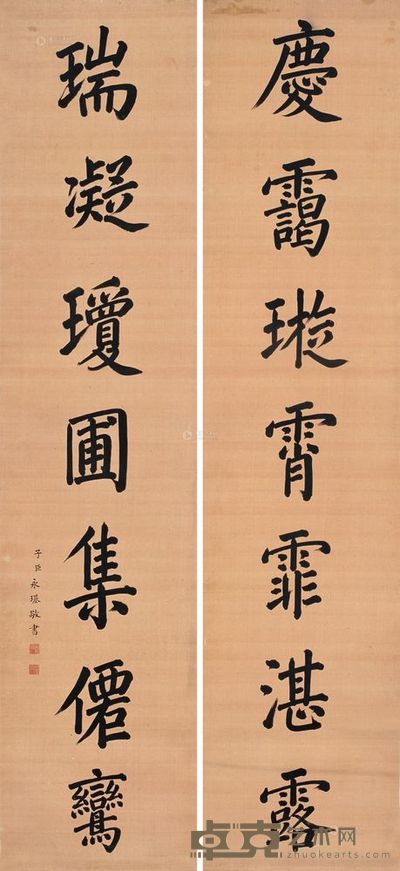 慶靄璇霄霏湛露
瑞凝瓊圃集僊鸞
子臣永瑆敬書
卓克艺术网
zhuokearts.com